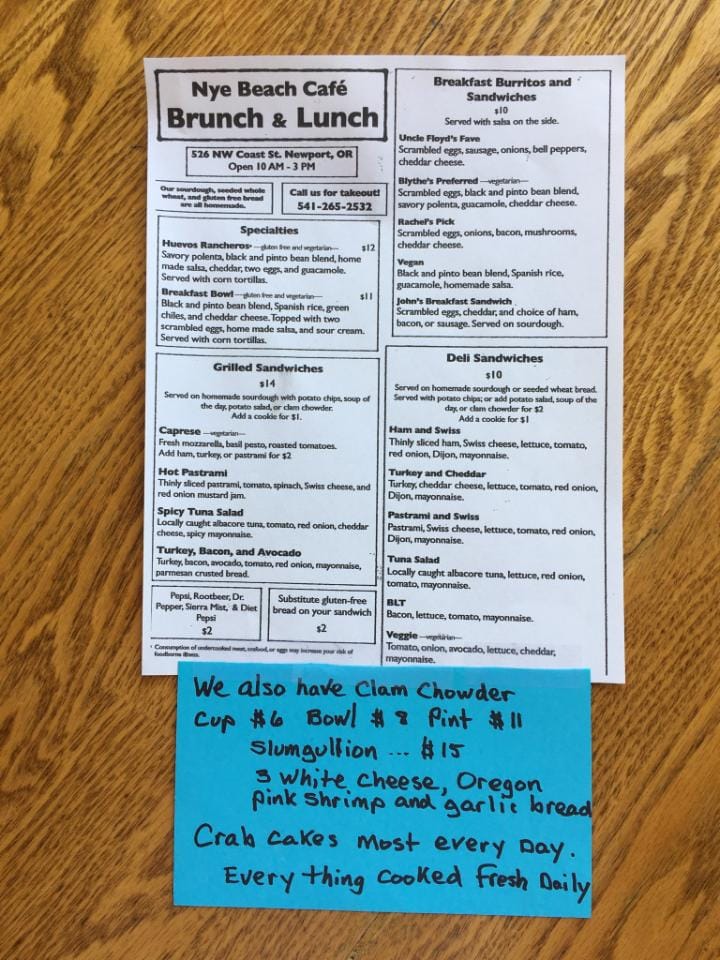 Nye Beach Café
Brunch & Lunch
526 NW Coast St. Newport, OR
Open 10 AM - 3 PM
Our sourdough, seeded whole
wheat, and gluten free bread
are all homemade.
Call us for takeout!
541-265-2532
Specialties
Huevos Rancheros* —gluten free and vegetarian— $12
Savory polenta, black and pinto bean blend, home
made salsa, cheddar, two eggs, and guacamole.
Served with corn tortillas.
Breakfast Bowl —gluten free and vegetarian— $11
Black and pinto bean blend, Spanish rice, green
chiles, and cheddar cheese. Topped with two
scrambled eggs, home made salsa, and sour cream.
Served with corn tortillas.
Grilled Sandwiches
$14
Served on homemade sourdough with potato chips, soup of
the day, potato salad, or clam chowder.
Add a cookie for $1.
Caprese —vegetarian—
Fresh mozzarella, basil pesto, roasted tomatoes.
Add ham, turkey, or pastrami for $2
Hot Pastrami
Thinly sliced pastrami, tomato, spinach, Swiss cheese, and
red onion mustard jam.
Spicy Tuna Salad
Locally caught albacore tuna, tomato, red onion, cheddar
cheese, spicy mayonnaise.
Turkey, Bacon, and Avocado
Turkey, bacon, avocado, tomato, red onion, mayonnaise,
parmesan crusted bread.
Pepsi, Rootbeer, Dr.
Pepper, Sierra Mist, & Diet
Pepsi
$2
Substitute gluten-free
bread on your sandwich
$2
* Consumption of undercooked meat, seafood, or eggs may increase your risk of
foodborne illness.
Breakfast Burritos and
Sandwiches
$10
Served with salsa on the side.
Uncle Floyd's Fave
Scrambled eggs, sausage, onions, bell peppers,
cheddar cheese.
Blythe's Preferred —vegetarian—
Scrambled eggs, black and pinto bean blend,
savory polenta, guacamole, cheddar cheese.
Rachel's Pick
Scrambled eggs, onions, bacon, mushrooms,
cheddar cheese.
Vegan
Black and pinto bean blend, Spanish rice,
guacamole, homemade salsa.
John's Breakfast Sandwich
Scrambled eggs, cheddar, and choice of ham,
bacon, or sausage. Served on sourdough.
Deli Sandwiches
$10
Served on homemade sourdough or seeded wheat bread.
Served with potato chips; or add potato salad, soup of the
day, or clam chowder for $2
Add a cookie for $1
Ham and Swiss
Thinly sliced ham, Swiss cheese, lettuce, tomato,
red onion, Dijon, mayonnaise.
Turkey and Cheddar
Turkey, cheddar cheese, lettuce, tomato, red onion,
Dijon, mayonnaise.
Pastrami and Swiss
Pastrami, Swiss cheese, lettuce, tomato, red onion,
Dijon, mayonnaise.
Tuna Salad
Locally caught albacore tuna, lettuce, red onion,
tomato, mayonnaise.
BLT
Bacon, lettuce, tomato, mayonnaise.
Veggie —vegetarian—
Tomato, onion, avocado, lettuce, cheddar,
mayonnaise.
We also have Clam Chowder
Cup $6 Bowl $8 Pint $11
Slumgullion ... $15
3 White Cheese, Oregon
pink shrimp and garlic bread
Crab cakes most every Day.
Every thing cooked Fresh Daily